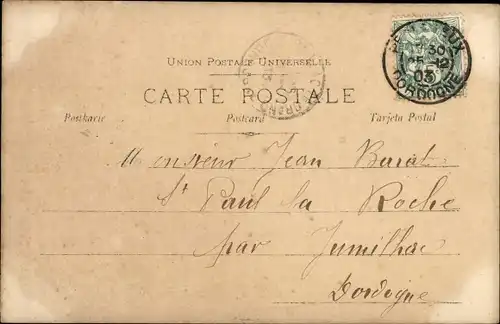 UNION POSTALE UNIVERSELLE
CARTE POSTALE
Postkarte Postcard Tarjeta Postal
30
25-12
03
DORDOGNE
Monsieur Jean Barat
St Paul la Roche
par Jumilhac
Dordogne